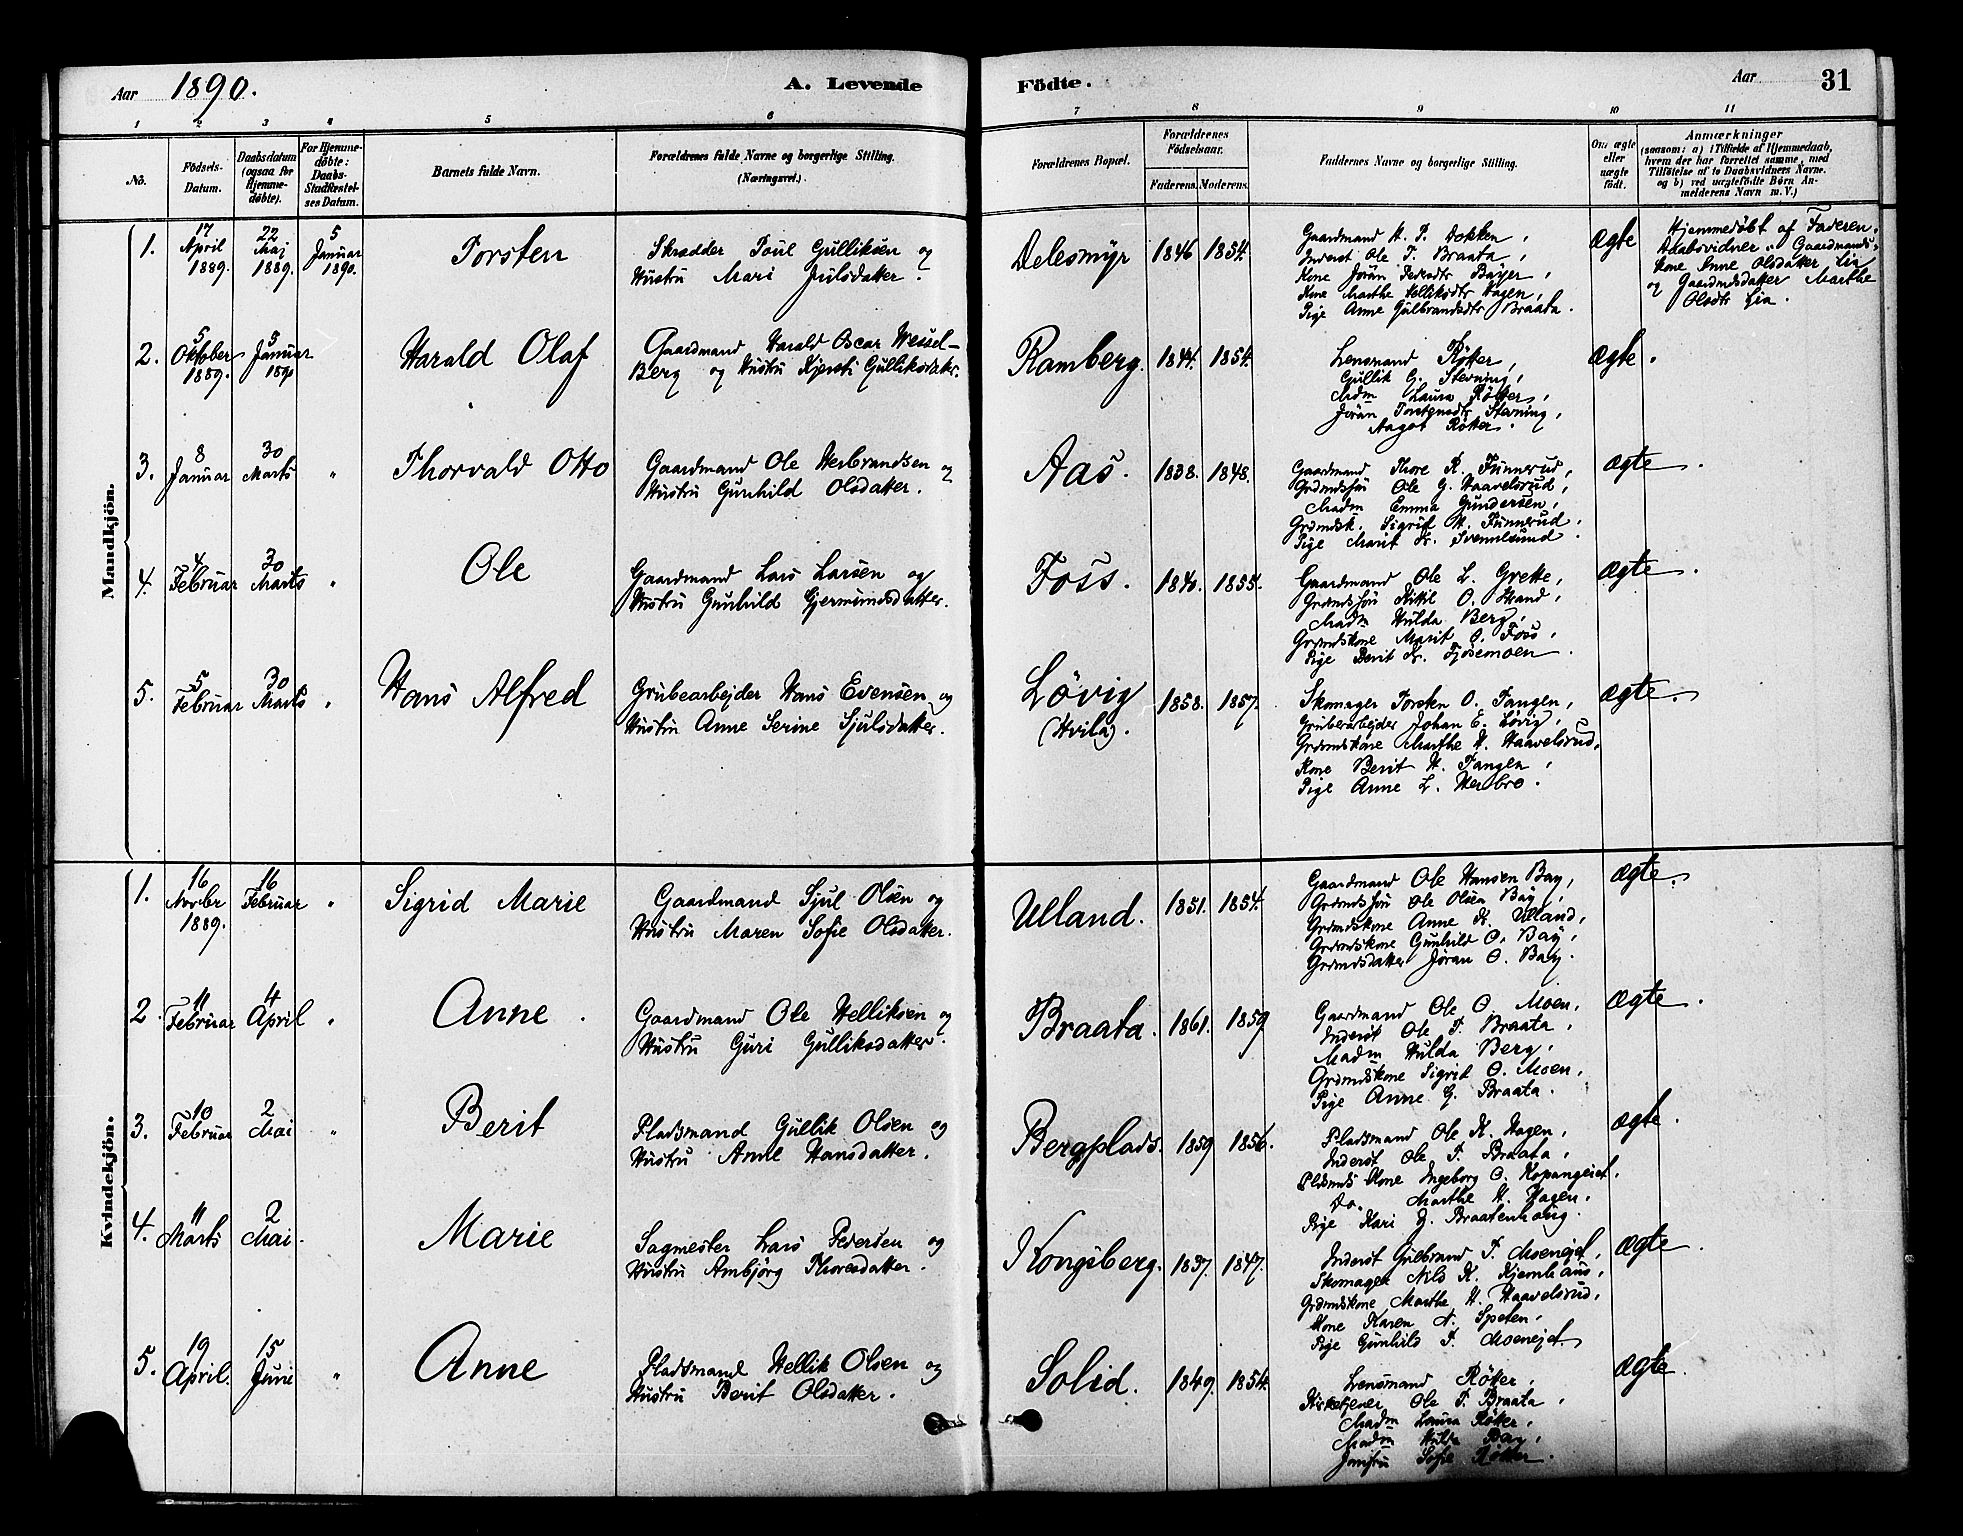 Aar 1890. A. Levende Födte. Aar 31
1 2 3 4 5 6 7 8 9 10 11
No.
Födsels-
Datum.
Daabsdatum
(ogsaa for
Hjemme-
døbte).
For Hjemme-
døbte:
Daabs-
Stadfæstel-
ses Datum.
Barnets fulde Navn.
Forældrenes fulde Navne og borgerlige Stilling.
(Næringsvei.)
Forældrenes Bopæl.
Forældrenes
Fødselsaar.
Faderens. Moderens.
Faddernes Navne og borgerlige Stilling.
Om ægte
eller
uægte
født.
Anmærkninger
(saasom: a) i Tilfælde af Hjemmedaab,
hvem der har forrettet samme, med
Tilføielse af to Daabsvidners Navne.
og b) ved uægtefødte Børn An-
melderens Navn m. V.)
Mandkjön.
1.
17
April
1889.
22
Maj
1889.
5
Januar
1890.
Torsten
Skrædder Poul Gulliksen og
Hustru Mari Julsdatter.
Delesmyr 1846 1854.
Gaardmand H. P. Dokken,
Inderst Ole T. Braata,
Kone Jöran Pedersdtr Bäyer,
Kone Marthe Helliksdtr Hagen,
Pige Anne Gulbrandsdtr Braata.
Ægte
Hjemmedøbt af Faderen.
Daabsvidner: Gaardmands-
kone Anne Olsdatter Lia
og Gaardmdsdatter Marthe
Olsdtr Lia.
2.
5
Oktober
1889.
5
Januar
1890
Harald Olaf
Gaardmand Harald Oscar Wessel-
Berg og Hustru Kjersti Gulliksdatter.
Ramberg. 1844. 1854.
Lensmand Rötter,
Gullik G. Stevning,
Madm Laura Rötter,
Jöran Torstensdtr Stevning,
Aagot Rötter.
Ægte.
3.
8
Januar
30
Marts "
Thorvald Otto
Gaardmand Ole Herbrandsen og
Hustru Gunhild Olsdatter.
Aas. 1838. 1848.
Gaardmand Thore K. Funnerud,
Grdmdssön Ole G. Haavelsrud,
Madm Emma Gundersen,
Grdmdsk. Sigrid H. Funnerud.
Pige Marit Kr. Svennesund.
Ægte.
4.
4
Februar
30
Marts "
Ole
Gaardmand Lars Larsen og
Hustru Gunhild Gjermundsdatter.
Foss. 1840. 1855.
Gaardmand Ole L. Grette,
Grdmdssön Kittil O. Strand,
Madm Hulda Berg,
Grdmdskone Marit O. Foss,
Pige Berit Kr. Fjösemoen.
Ægte.
5.
5
Februar
30
Marts "
Hans Alfred
Grubearbejder Hans Evensen og
Hustru Anne Serine Sjulsdatter.
Lövig
(Hvila). 1858. 1857.
Skomager Torsten O. Tangen,
Grubearbejder Johan E. Lövig,
Grdmdskone Marthe H. Haavelsrud,
Kone Berit H. Tangen,
Pige Anne L. Herbro.
Ægte.
Kvindekjön.
1.
16
Novbr
1889.
16
Februar "
Sigrid Marie
Gaardmand Sjul Olsen og
Hustru Maren Sofie Olsdatter.
Ulland. 1851. 1854.
Gaardmand Ole Hansen Bay,
Grdmdssön Ole Olsen Bay,
Grdmdskone Anne K. Ulland,
Grdmdskone Gunhild O. Bay,
Grdmdsdatter Jöran O. Bay.
Ægte.
2.
11
Februar
4
April "
Anne.
Gaardmand Ole Helliksen og
Hustru Guri Gulliksdatter.
Braata. 1861. 1859
Gaardmand Ole O. Moen,
Inderst Ole T. Braata,
Madm Hulda Berg,
Grdmdskone Sigrid O. Moen,
Pige Anne G. Braata.
Ægte.
3.
10
Februar
2
Mai "
Berit
Pladsmand Gullik Olsen og
Hustru Anne Hansdatter.
Bergplads. 1859 1856.
Pladsmand Ole K. Hagen,
Inderst Ole T. Braata,
Pladsmds Kone Ingeborg O. Kopangeiet.
Do. Marthe H. Hagen.
Pige Kari G. Braatenhaug.
Ægte.
4.
11
Marts
2
Mai.
Marie
Sagmester Lars Pedersen og
Hustru Ambjörg Thoresdatter.
Kongsberg. 1837. 1847.
Inderst Gulbrand T. Moenejet,
Skomager Nils K. Kjemhaus,
Grdmdskone Marthe H. Haavelsrud,
Kone Karen N. Speten,
Pige Gunhild T. Moenejet.
Ægte.
5.
19
April.
15
Juni "
Anne
Pladsmand Hellik Olsen og
Hustru Berit Olsdatter.
Solid. 1849. 1854.
Lensmand Rötter,
Kirketjener Ole T. Braata,
Madm Laura Rötter,
Madm Hulda
Jomfru Sofie Rötter.
Ægte.